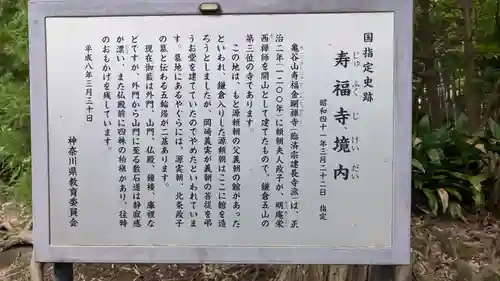 国指定史跡
寿福寺境内
じゅ ふく じ けい だい
昭和四十一年三月二十二日 指定
亀谷山寿福金剛禅寺（臨済宗建長寺派）は、正
治二年（一二〇〇年）に頼朝夫人政子が、明庵栄
西禅師を開山として建てたもので、鎌倉五山の
第三位の寺であります。
この地は、もと源頼朝の父義朝の館があった
といわれ、鎌倉入りした源頼朝はここに館を造
ろうとしましたが、岡崎義実が義朝の菩提を弔
うお堂を建てていたのでやめたといわれていま
す。墓地にあるやぐらには、源実朝、北条政子
の墓と伝わる五輪塔が二基あります。
現在伽藍は外門、山門、仏殿、鐘楼、庫裡な
どですが、外門から山門に至る敷石道は静寂感
が漂い、また仏殿前に四株の柏槇があり、往時
のおもかげを残しています。
平成八年三月三十日
神奈川県教育委員会